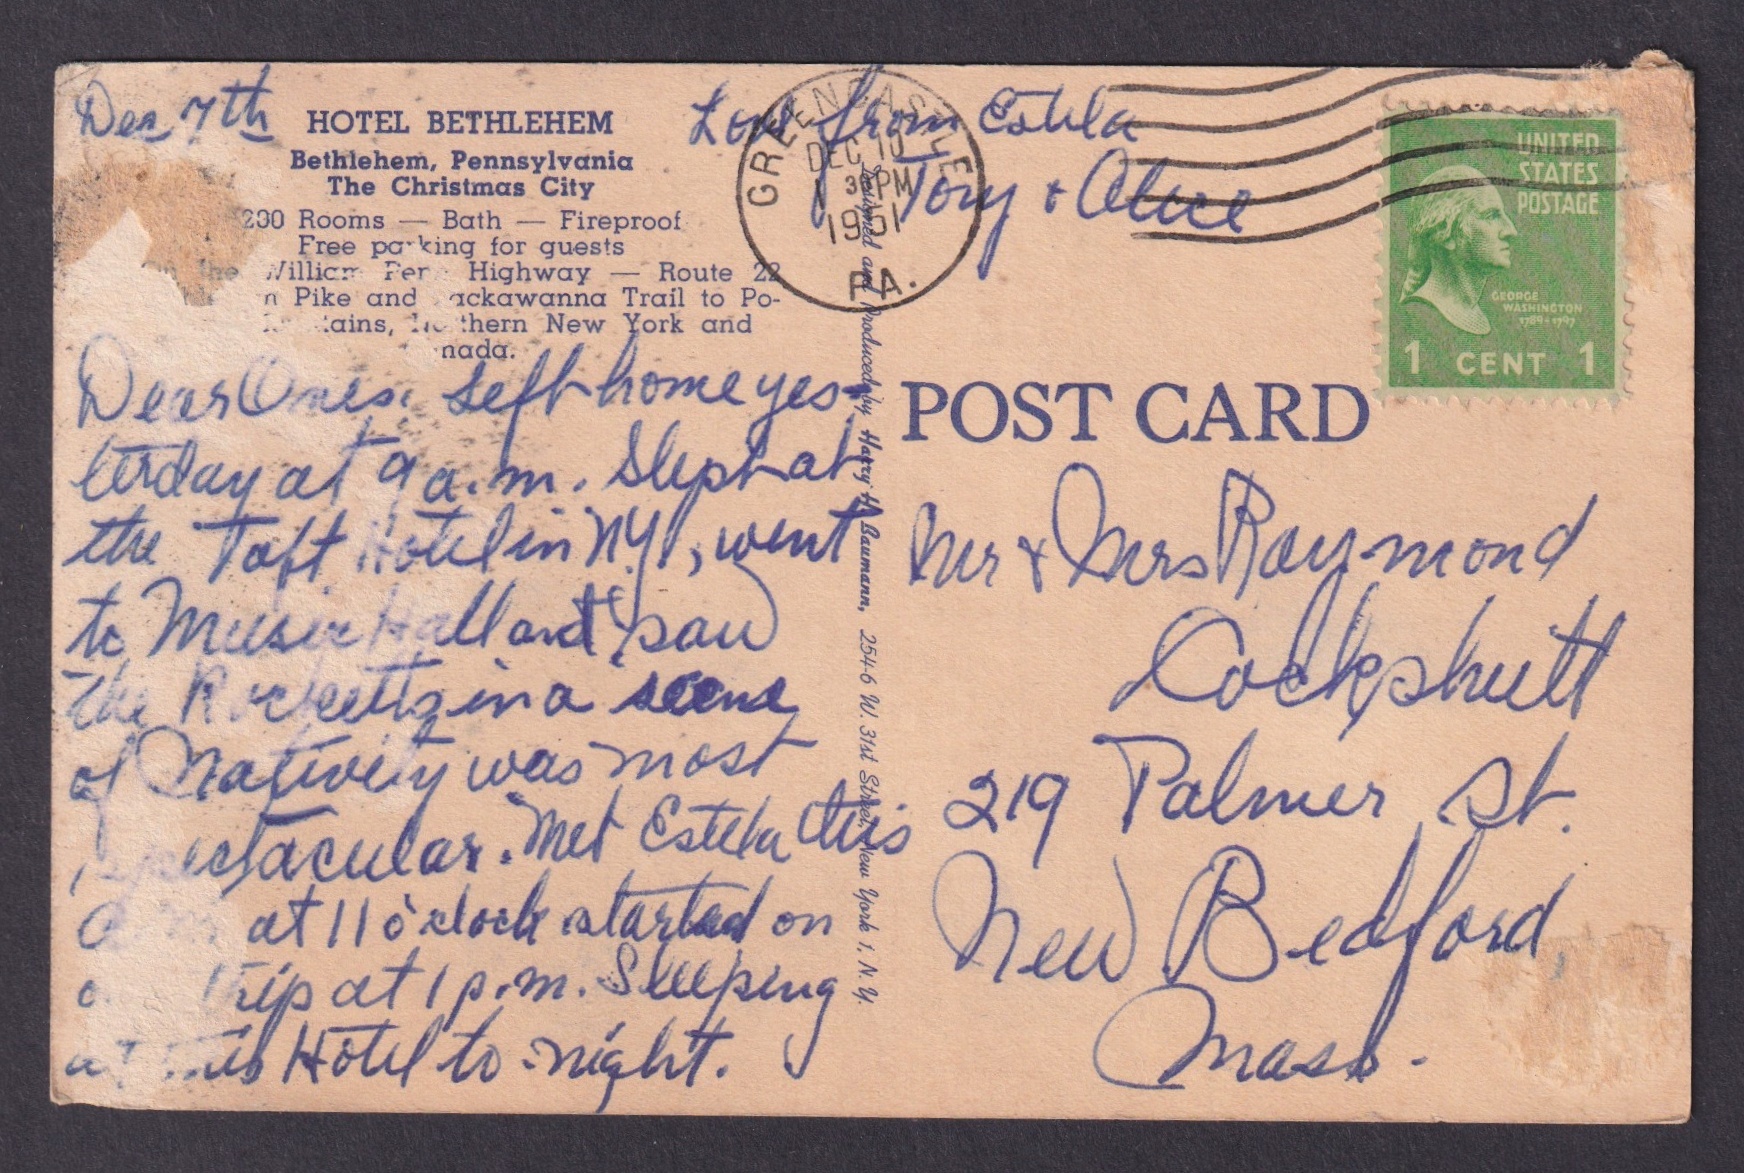 Dec 7th
HOTEL BETHLEHEM
Bethlehem, Pennsylvania
The Christmas City
200 Rooms — Bath — Fireproof
Free parking for guests
the William Penn Highway — Route 22
Pike and Lackawanna Trail to Po-
Northern New York and
nada.
Dear Ones. Left home yes-
terday at 9 a.m. Slept at
the Taft Hotel in N.Y., went
to Music Hall and saw
the Rocketts in a scene
of Nativity was most
spectacular. Met Estela this
at 11 o'clock started on
trip at 1 p.m. Sleeping
at this Hotel to-night.
Love from Estela
Tony & Alice
GREENCASTLE
DEC 10
1951
PA.
UNITED
STATES
POSTAGE
GEORGE
WASHINGTON
1789-1797
1 CENT 1
Designed and Produced by Harry H. Baumann, 254-6 W. 31st Street, New York 1, N.Y.
POST CARD
Mr & Mrs Raymond
Cockshutt
219 Palmer St.
New Bedford,
Mass.